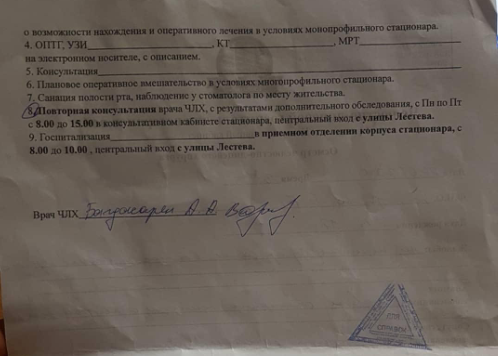 о возможности нахождения и оперативного лечения в условиях монопрофильного стационара.
4. ОПТГ, УЗИ____________, КТ____________, МРТ____________
на электронном носителе, с описанием.
5. Консультация____________
6. Плановое оперативное вмешательство в условиях многопрофильного стационара.
7. Санация полости рта, наблюдение у стоматолога по месту жительства.
8. Повторная консультация врача ЧЛХ, с результатами дополнительного обследования, с Пн по Пт
с 8.00 до 15.00 в консультативном кабинете стационара, центральный вход с улицы Лестева.
9. Госпитализация____________в приемном отделении корпуса стационара, с
8.00 до 10.00 , центральный вход с улицы Лестева.
Врач ЧЛХ А. А.